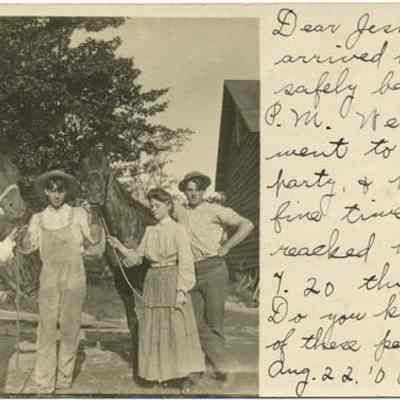 Dear Jes
arrived
safely be
P.M. We
went to
party, &
fine time
reached
7.20 th
Do you k
of these pe
Aug. 22. '0